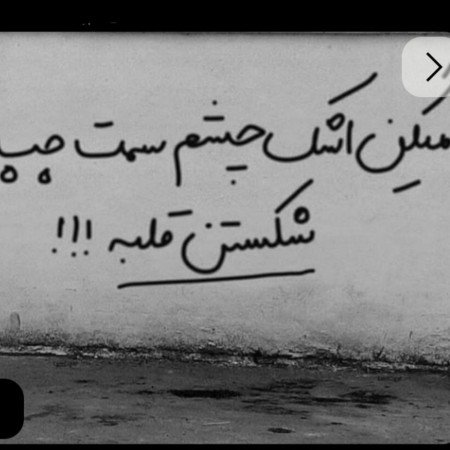 میگن اشک چشم سمت چپ
شکستن قلبه !!!